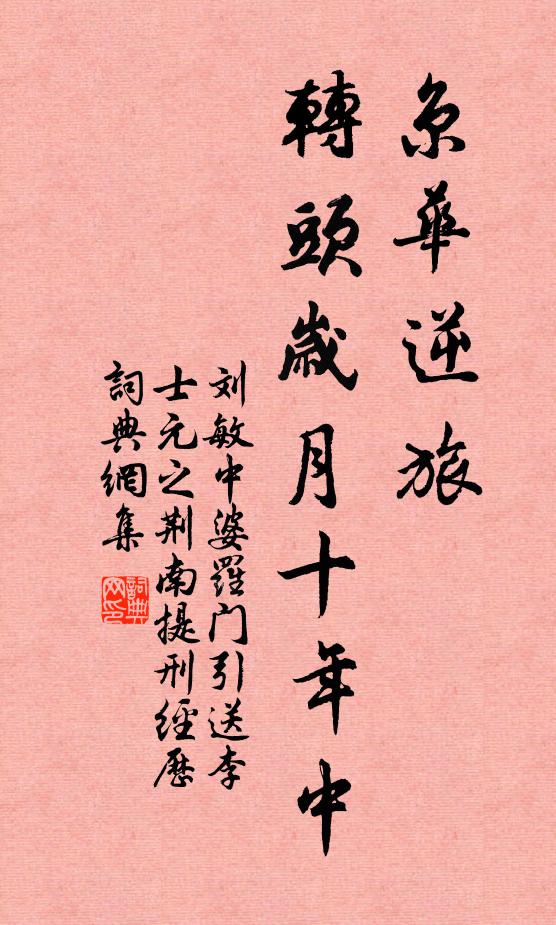 京華逆旅
轉頭歲月十年中
刘敏中婆羅門引送李
士元之荆南提刑經歷
詞典網集
詞典网印